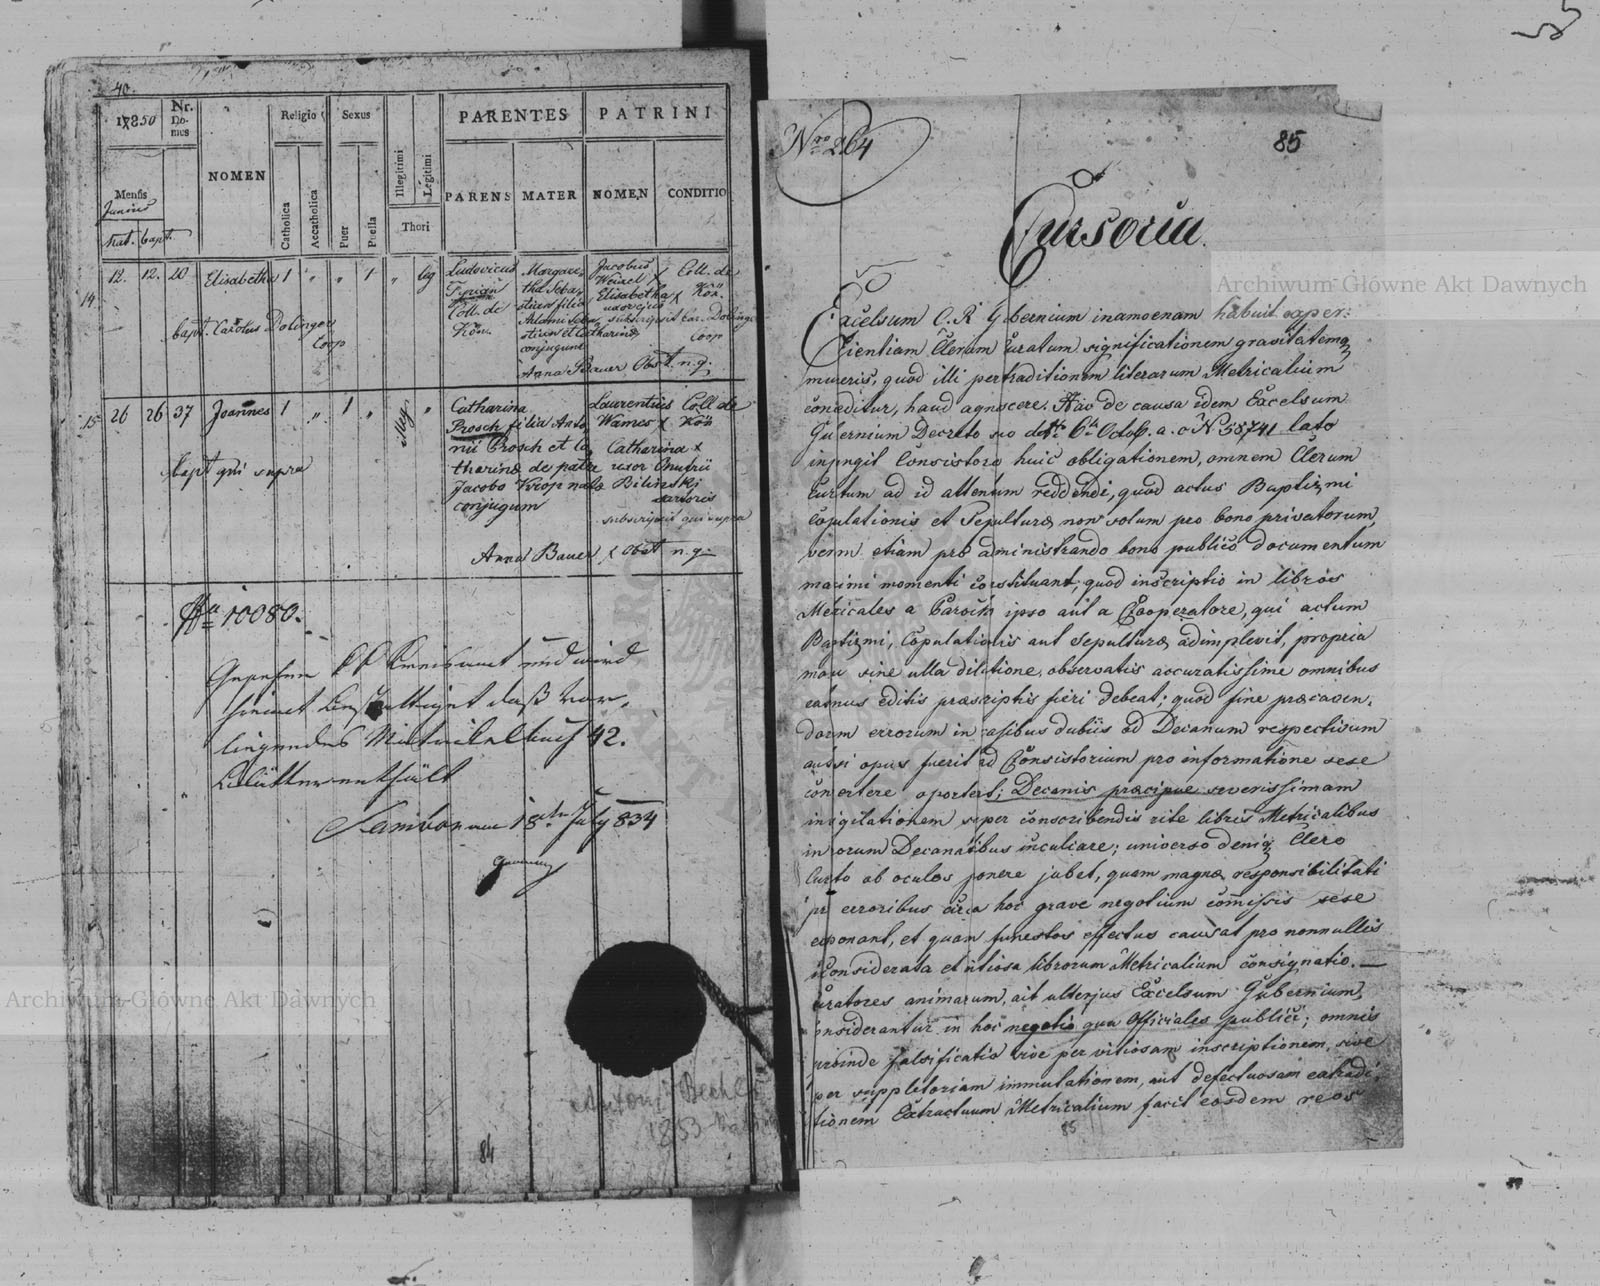 40.
17850
Nr. Domus
NOMEN
Religio
Sexus
Illegitimi
Legitimi
Thori
PARENTES
PATRINI
Mensis
Junius
Nat. bapt.
Catholica
Accatholica
Puer
Puella
PARENS
MATER
NOMEN
CONDITIO
14
12. 12. 20 Elisabetha 1 " " 1 " leg
Ludovicus
Coll. de
Kön.
Margare
tha Seba
stian filia
Adami Seba
stian et Catharina
conjugum
Jacobus
Weisel x
Elisabetha x
uxor ejus
subscripsit Car. Dolinger
Coop
Coll. de
Kön.
bapt. Carolus Dolinger
Coop
Anna Bauer Obst. n. g.
15
26 26 37 Joannes 1 " 1 " Illeg "
Catharina
Prosch filia Anto
nii Prosch et Ca
tharina de patre
Jacobo Krop nata
conjugum
Laurentius
Wames x
Catharina x
uxor Onufrii
Bilinskj
sartoris
subscripsit qui supra
Coll de
Kön
bapt qui supra
Anna Bauer x Obst n. g.
10080.
Gesehen KK Kreisamt und wird
hiemit bestättiget daß vor-
liegendes Matrikelbuch 42.
Blätter enthält
Sambor am 18ten July 834
84
Antoni Becher
1853
Nro 264
85
Cursoria.
Excelsum C. R Gubernium inamoenam habuit exper:
rientiam Clerum Curatum significationem gravitatemq
muneris, quod illi per traditionem literarum Metricalium
conceditur, haud agnoscere. Hac de causa idem Excelsum
Gubernium Decreto suo dtto 6ta Octob. a. c N. 58741 lato
injungit Consistorio huic obligationem, omnem Clerum
Curatum ad id attentum reddendi, quod actus Baptizmi
Copulationis et Sepulturæ non solum pro bono privatorum,
verum etiam pro administrando bono publico documentum
maximi momenti constituant, quod inscriptio in libros
Metricales a Parocho ipso aut a Cooperatore, qui actum
Baptizmi, Copulationis aut Sepulturæ adimplevit, propria
manu sine ulla dilatione, observatis accuratissime omnibus
eatenus editis præscriptis fieri debeat; quod fine præcaven-
dorum errorum in casibus dubiis ad Decanum respectivum
aut si opus fuerit ad Consistorium pro informatione sese
convertere oporteat; Decanis præcipue severissimam
invigilationem super conscribendis rite libris Metricalibus
in suorum Decanatibus inculcare; universo deniq Clero
Curato ob oculos ponere jubet, quam magnæ responsibilitati
pro erroribus circa hoc grave negotium comissis sese
exponant, et quam funestos effectus causat pro nonnullis
inconsiderata et vitiosa librorum Metricalium consignatio.—
Curatores animarum, ait ulterjus Excelsum Gubernium,
considerantur in hoc negotio qua Officiales publici; omnis
proinde falsificatio sive per vitiosam inscriptionem, sive
per suppletoriam immutationem, aut defectuosam extradi
tionem Extractuum Metricalium facit eosdem reos
85
Archiwum Główne Akt Dawnych
Archiwum Główne Akt Dawnych